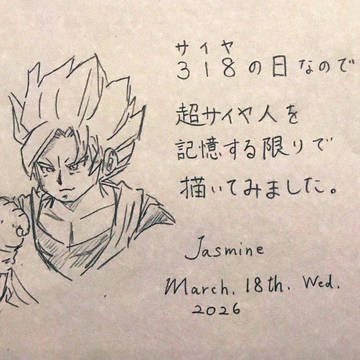 サイヤ
318の日なので
超サイヤ人を
記憶する限りで
描いてみました。
Jasmine
March. 18th. Wed.
2026